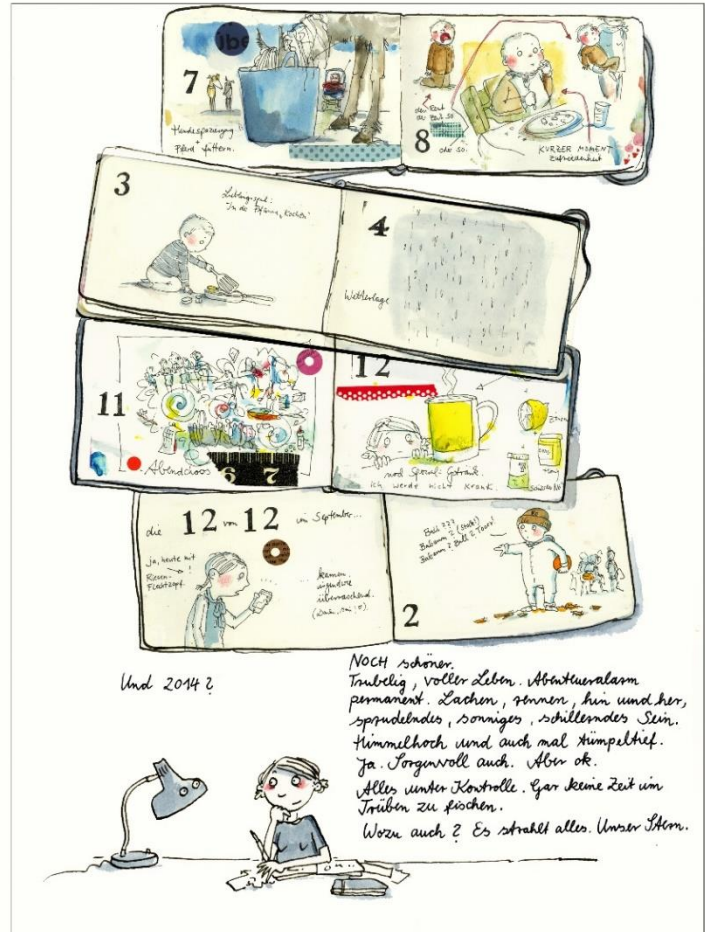 7
Hundespaziergang
+
Pferd füttern.
8
der Rest
der Zeit so
oder so.
KURZER MOMENT
Zufriedenheit
3
Lieblingsspiel:
In der Pfanne "Kochen"
4
Wetterlage
11
Abendchaos
6 7
12
Zitrone
Honig
nod Spezial-Getränk.
ich werde nicht krank.
die 12 von 12 im September...
ja, heute mit
Riesen-
Flechtzopf.
... kamen
irgendwie
überraschend.
2
Ball ???
Babaum 2 (Stock!)
Babaum 2 Ball 2 Toorr!
Und 2014?
NOCH schöner.
Trubelig, voller Leben. Abenteueralarm
permanent. Lachen, rennen, hin und her,
sprudelndes, sonniges, schillerndes Sein.
Himmelhoch und auch mal tümpeltief.
Ja. Sorgenvoll auch. Aber ok.
Alles unter Kontrolle. Gar keine Zeit im
Trüben zu fischen.
Wozu auch? Es strahlt alles. Unser Stern.